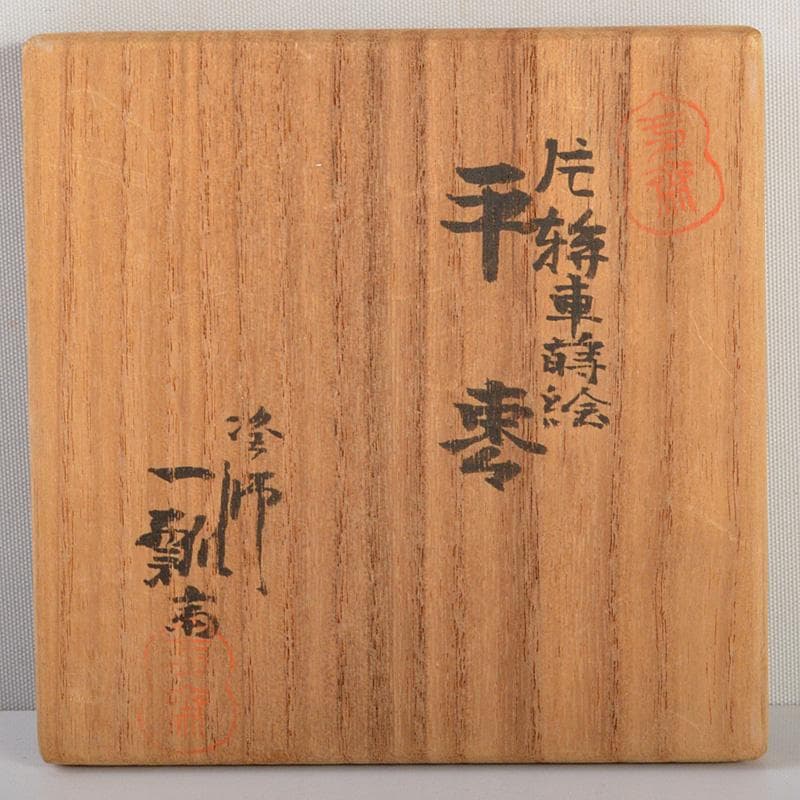 片輪車蒔絵
平棗
塗師
一瓢斎